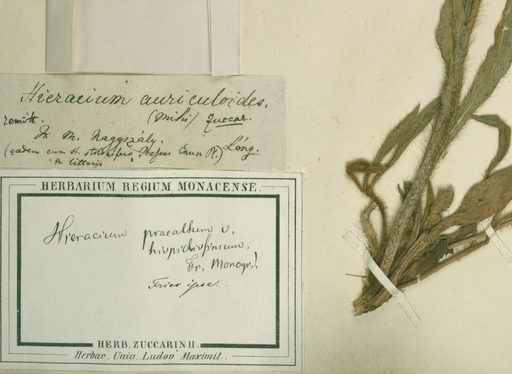 Hieracium auriculoides.
remitt. (mihi) Zuccar.
In M. Nagyszály. Láng.
(eadem cum H.
in litteris
HERBARIUM REGIUM MONACENSE.
Hieracium praealtum v.
hispidissimum,
Fr. Monogr.
Fries ipse.
HERB. ZUCCARINII.
Herbar. Univ. Ludov. Maximil.